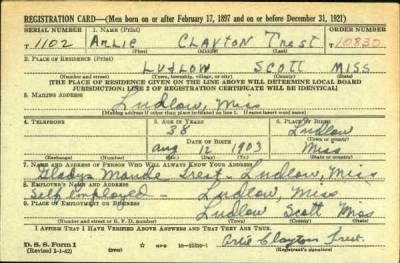 REGISTRATION CARD—(Men born on or after February 17, 1897 and on or before December 31, 1921)
SERIAL NUMBER 1. NAME (Print) ORDER NUMBER
T 1102 ARLIE CLAYTON Trest T 10830
(First) (Middle) (Last)
2. PLACE OF RESIDENCE (Print)
LUDLOW SCOTT MISS
(Number and street) (Town, township, village, or city) (County) (State)
[THE PLACE OF RESIDENCE GIVEN ON THE LINE ABOVE WILL DETERMINE LOCAL BOARD
JURISDICTION; LINE 2 OF REGISTRATION CERTIFICATE WILL BE IDENTICAL]
3. MAILING ADDRESS
Ludlow, Miss
[Mailing address if other than place indicated on line 2. If same insert word same]
4. TELEPHONE 5. AGE IN YEARS 6. PLACE OF BIRTH
38 Ludlow
DATE OF BIRTH (Town or county)
Aug 12 1903 Miss
(Exchange) (Number) (Mo.) (Day) (Yr.) (State or country)
7. NAME AND ADDRESS OF PERSON WHO WILL ALWAYS KNOW YOUR ADDRESS
Gladys Maude Trest - Ludlow, Miss
8. EMPLOYER'S NAME AND ADDRESS
Self Employed - Ludlow, Miss
9. PLACE OF EMPLOYMENT OR BUSINESS
Ludlow Scott Miss
(Number and street or R. F. D. number) (Town) (County) (State)
I AFFIRM THAT I HAVE VERIFIED ABOVE ANSWERS AND THAT THEY ARE TRUE.
D. S. S. Form 1
(Revised 1-1-42) Arlie Clayton Trest
(Registrant's signature)